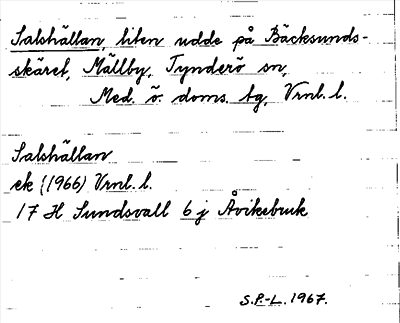 Salshällan, liten udde på Bäcksunds-
skäret, Mällby, Tynderö sn,
Med. ö. doms. tg, Vrnl. l.
Salshällan
ek (1966) Vrnl. l.
17 H Sundsvall 6 j Åvikebruk
S.P.-L. 1967.